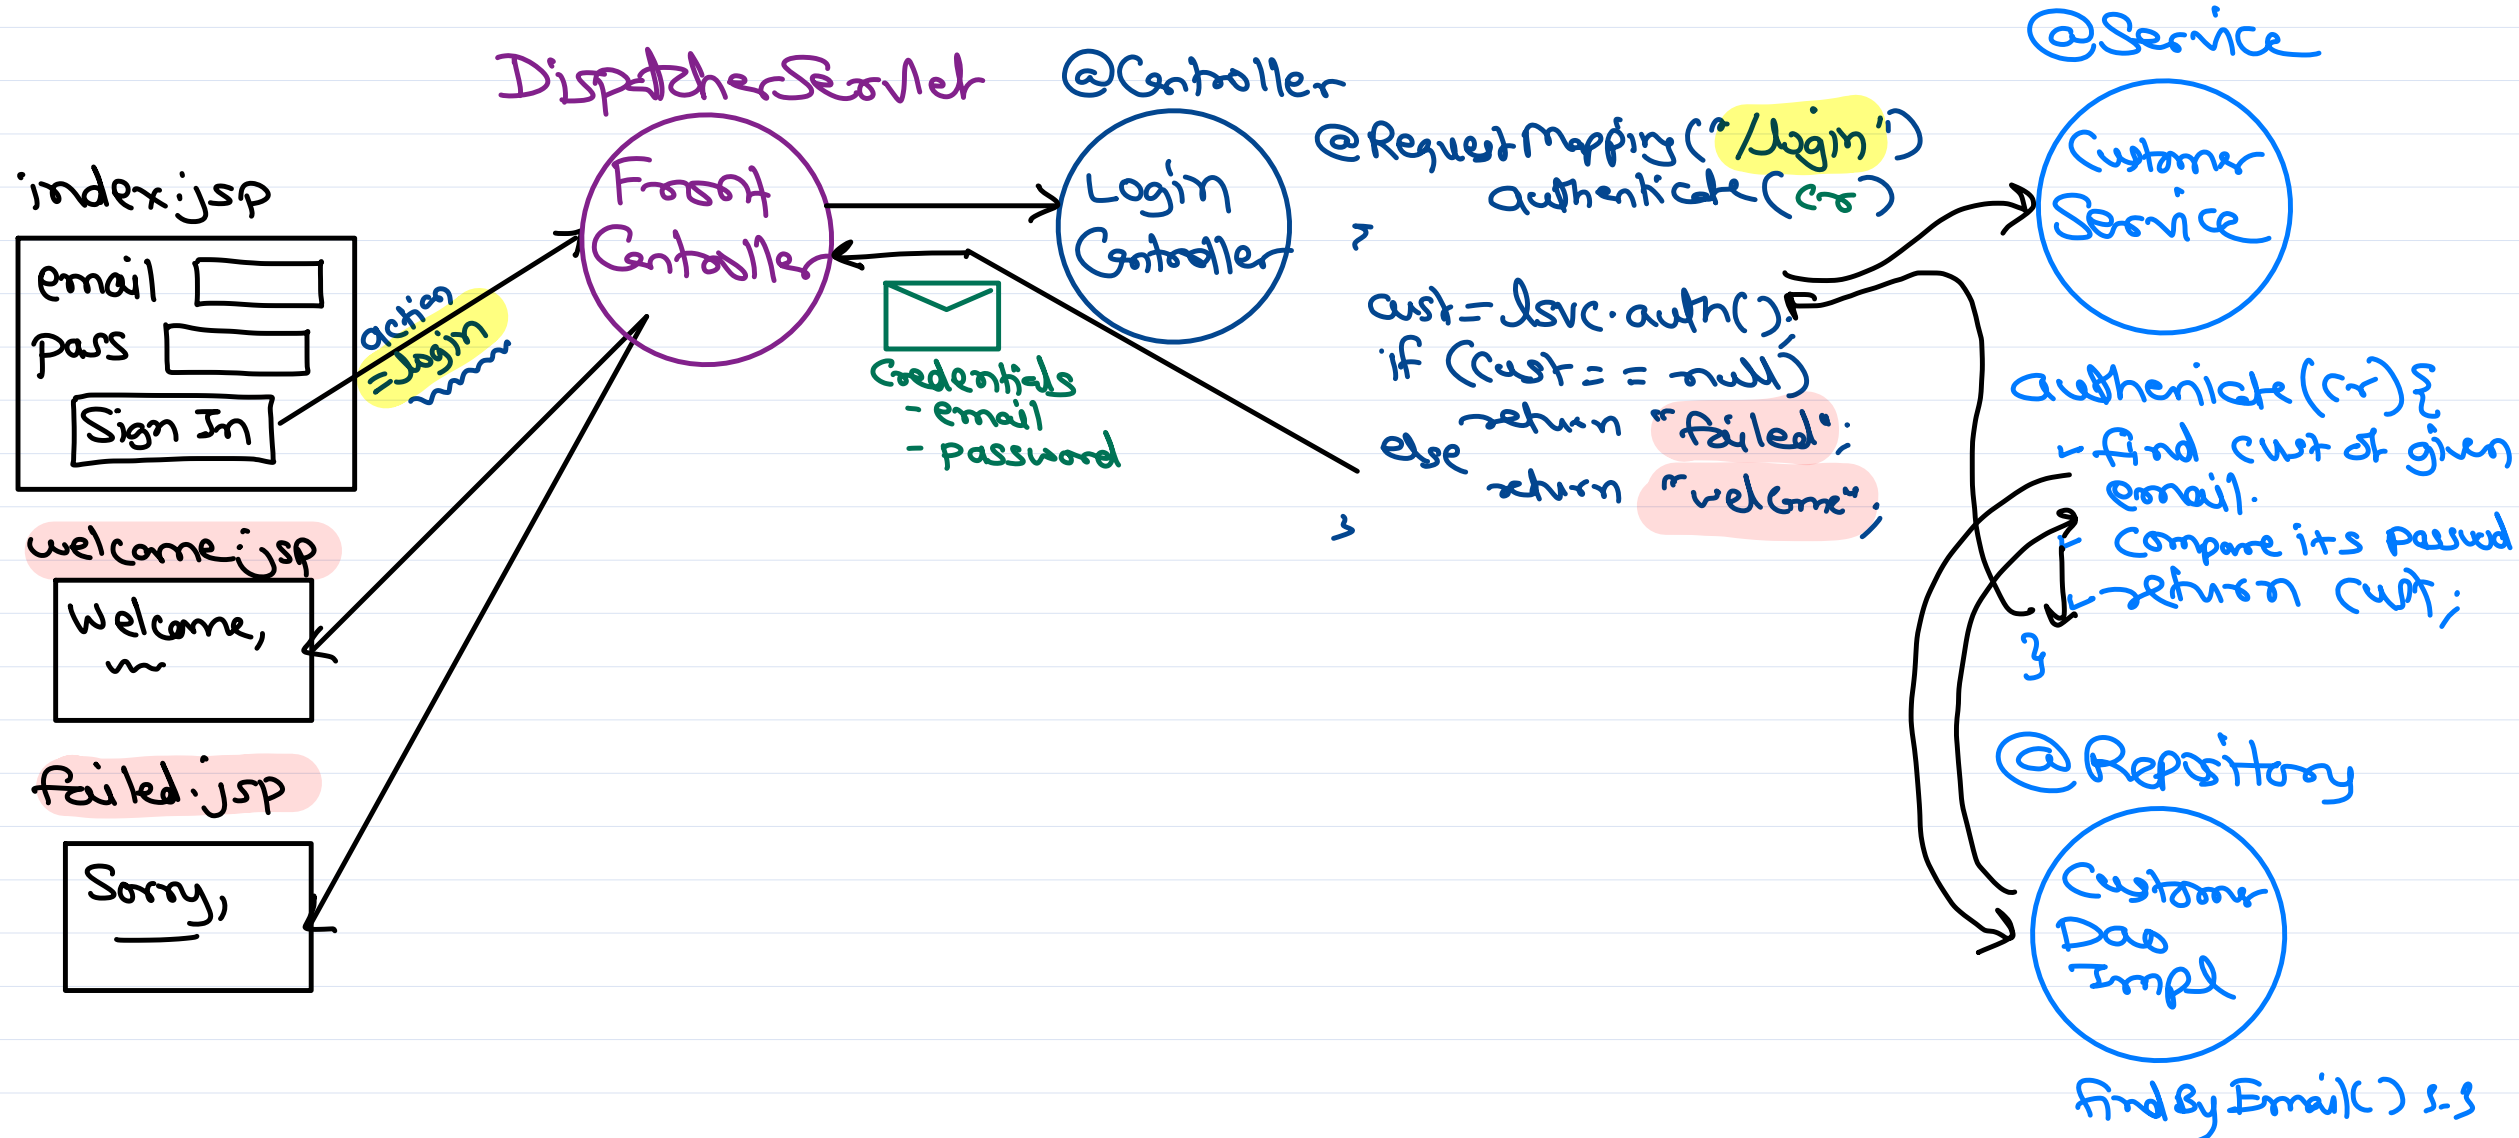 index.jsp
email
pass
Sign In
action
= login
welcome.jsp
Welcome,
failed.jsp
Sorry,
DispatcherServlet
Front
Controller
Credentials
- email
- password
@Controller
Login
Controller
@RequestMapping("/login")
authenticate(Cre)
{
cust = lserv.auth();
if (cust == null)
return "failed";
else
return "welcome";
}
@Service
Service
authenticate(Cr) {
- find cust at given
email.
- compare its passwd
- return cust;
}
@Repository
Customer
Dao
Impl
findByEmail() { }